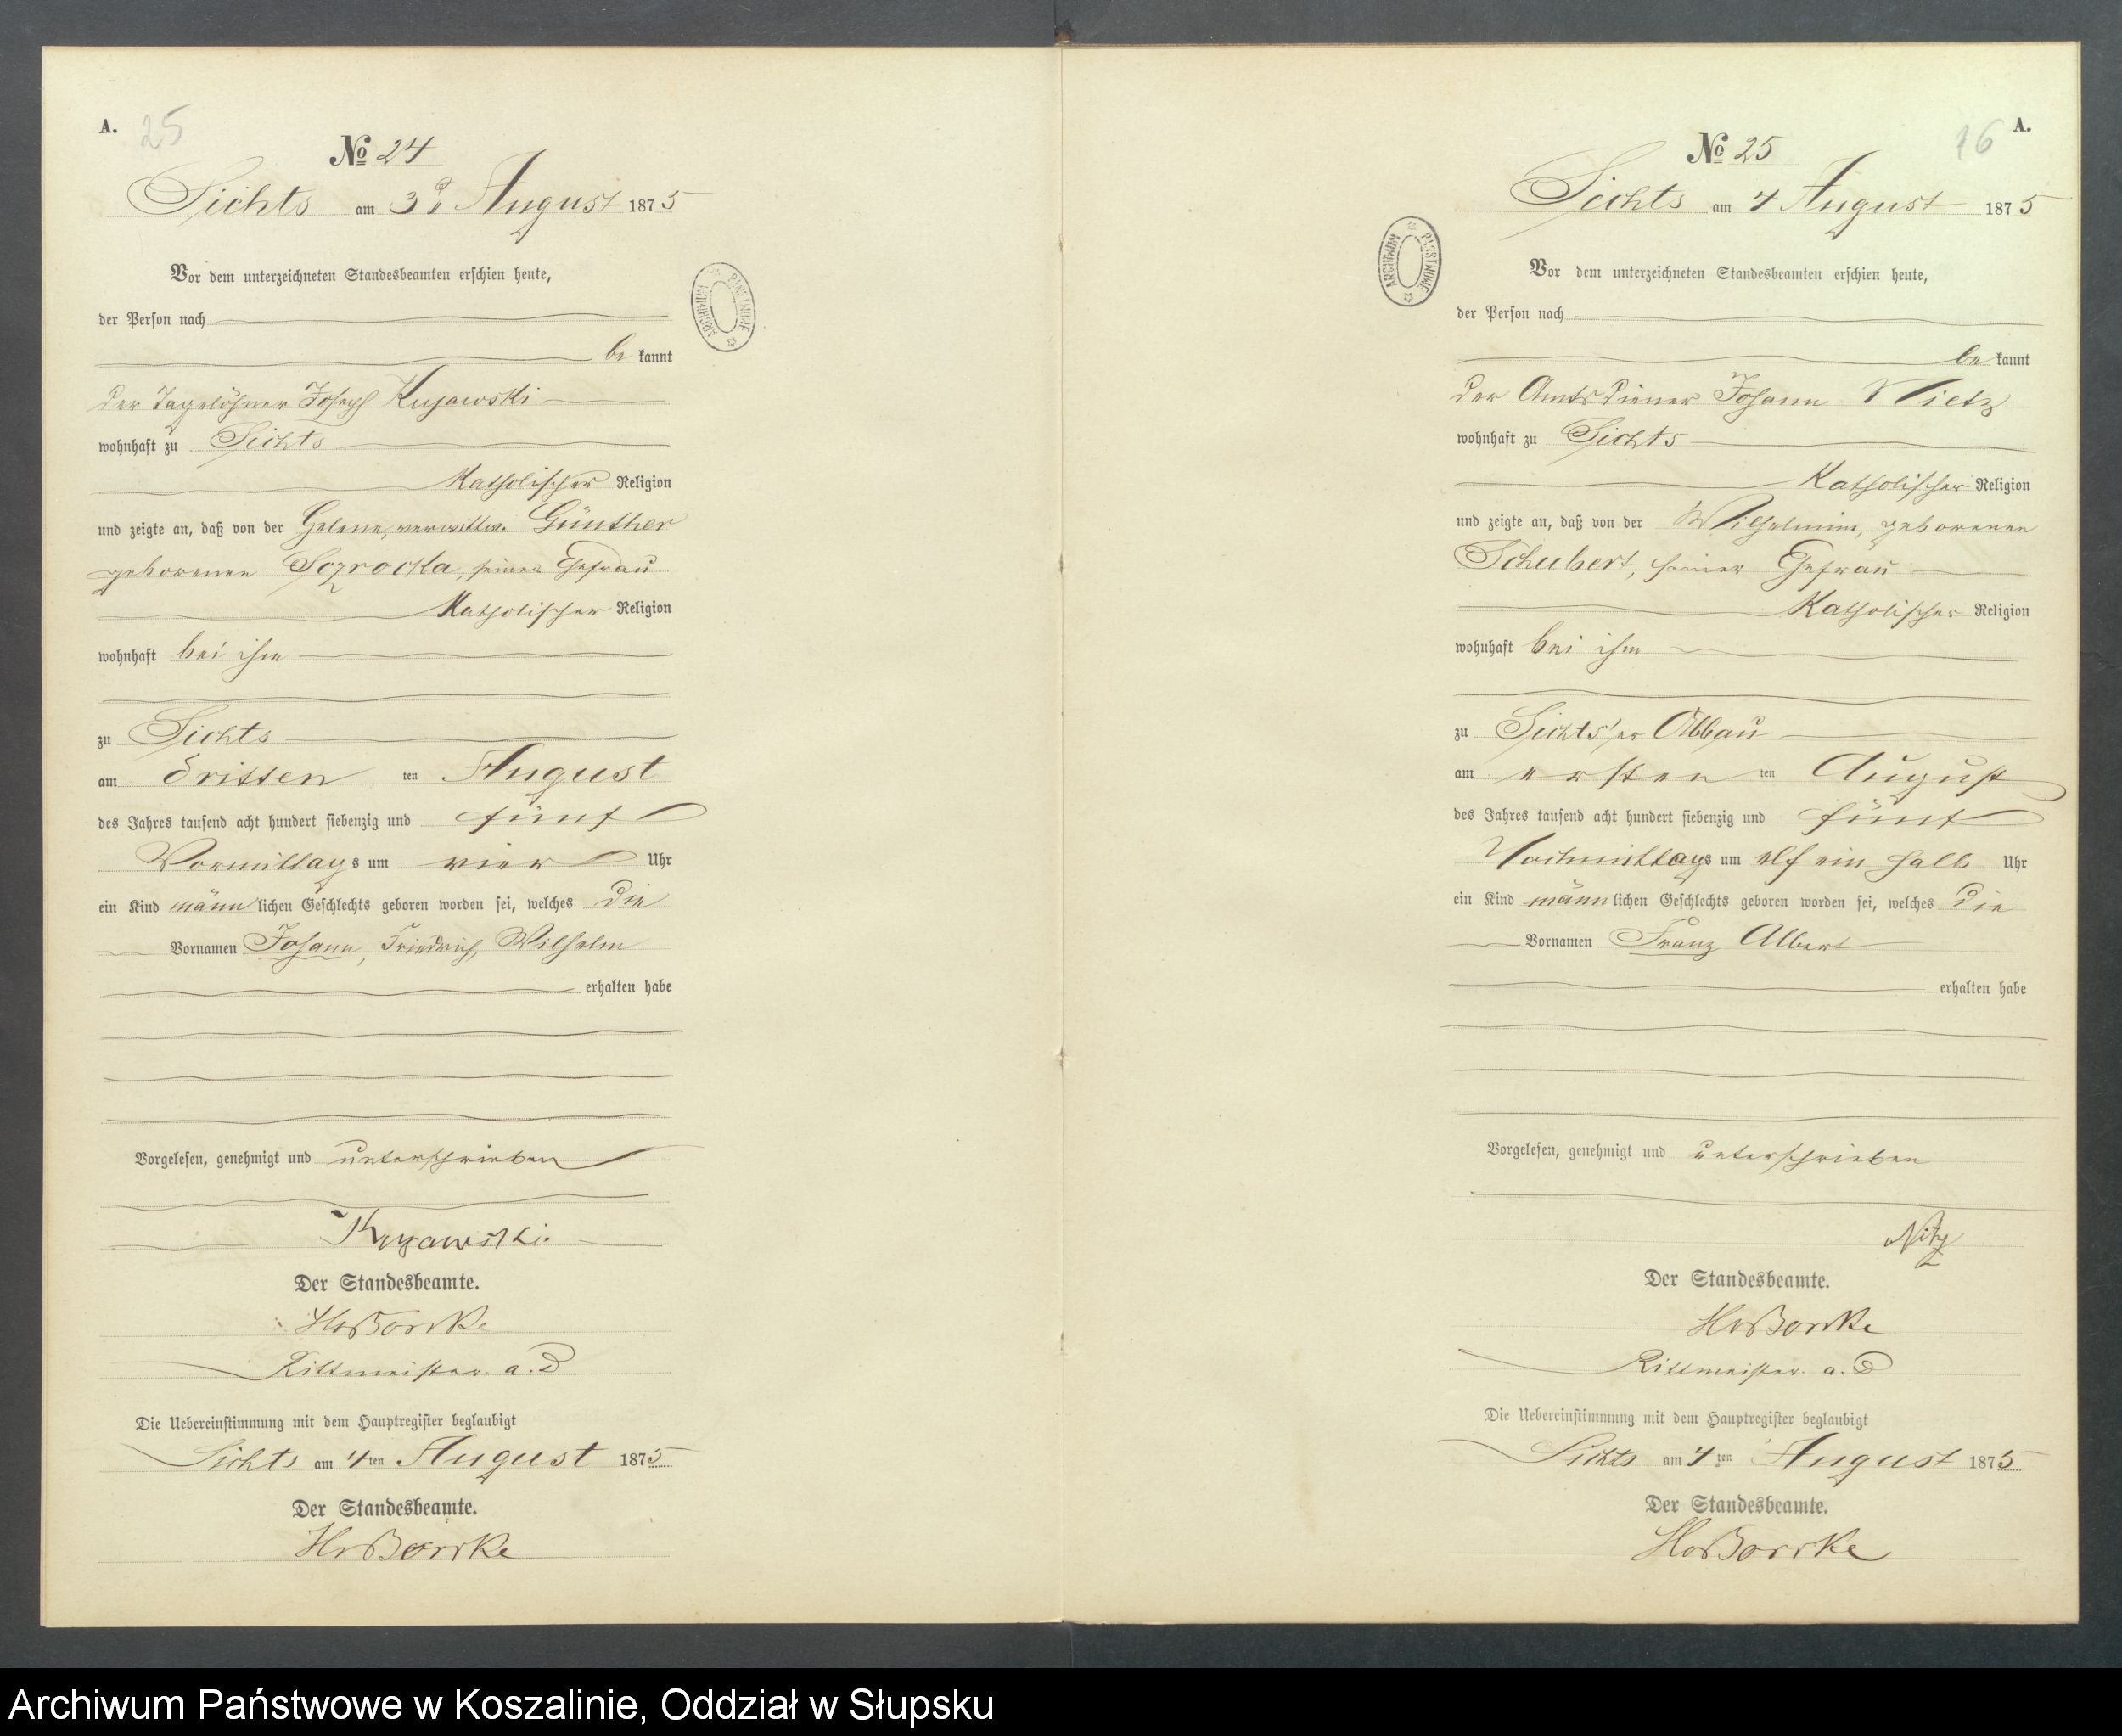 A. 25
No 24
Sichts am 3d August 1875
Vor dem unterzeichneten Standesbeamten erschien heute,
der Person nach
be kannt
der Tagelöhner Joseph Kujawski
wohnhaft zu Sichts
Katholischer Religion
und zeigte an, daß von der Helene, verwittw. Günther
geborenen seiner Ehefrau
Katholischer Religion
wohnhaft bei ihm
zu Sichts
am dritten ten August
des Jahres tausend acht hundert siebenzig und fünf
Vormittags um vier Uhr
ein Kind männlichen Geschlechts geboren worden sei, welches die
Vornamen Johann, Friedrich, Wilhelm
erhalten habe
Vorgelesen, genehmigt und unterschrieben
Kujawski
Der Standesbeamte.
HvBorcke
Rittmeister a.D
Die Uebereinstimmung mit dem Hauptregister beglaubigt
Sichts am 4ten August 1875
Der Standesbeamte.
HvBorcke
ARCHIWUM PAŃSTWOWE
A.
No 25
Sichts am 4 August 1875
Vor dem unterzeichneten Standesbeamten erschien heute,
der Person nach
be kannt
der Amtsdiener Johann Nietz
wohnhaft zu Sichts
Katholischer Religion
und zeigte an, daß von der Wilhelmine, geborenen
Schubert, seiner Ehefrau
Katholischer Religion
wohnhaft bei ihm
zu Sichts'er Abbau
am ersten ten August
des Jahres tausend acht hundert siebenzig und fünf
Nachmittags um elf ein halb Uhr
ein Kind männlichen Geschlechts geboren worden sei, welches die
Vornamen Franz Albert
erhalten habe
Vorgelesen, genehmigt und unterschrieben
Nitz
Der Standesbeamte.
HvBorcke
Rittmeister a.D
Die Uebereinstimmung mit dem Hauptregister beglaubigt
Sichts am 4ten August 1875
Der Standesbeamte.
HvBorcke
ARCHIWUM PAŃSTWOWE
Archiwum Państwowe w Koszalinie, Oddział w Słupsku